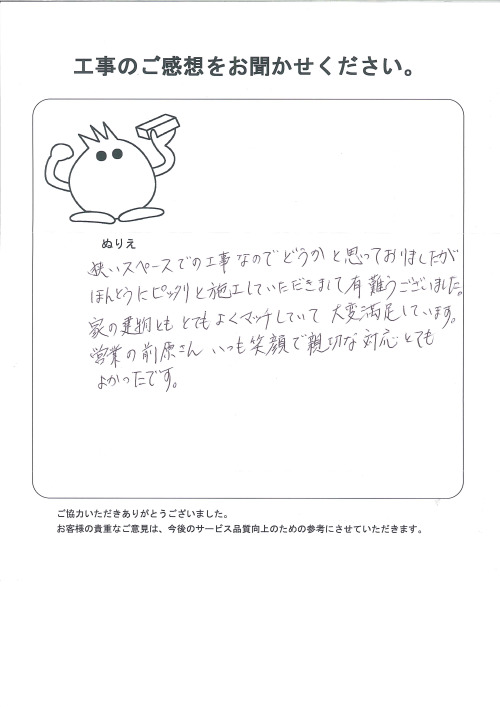 工事のご感想をお聞かせください。
ぬりえ
狭いスペースでの工事なのでどうかと思っておりましたが
ほんとうにピッタリと施工していただきまして有難うございました。
家の建物ともとてもよくマッチしていて大変満足しています。
営業の前原さんいつも笑顔で親切な対応とても
よかったです。
ご協力いただきありがとうございました。
お客様の貴重なご意見は、今後のサービス品質向上のための参考にさせていただきます。